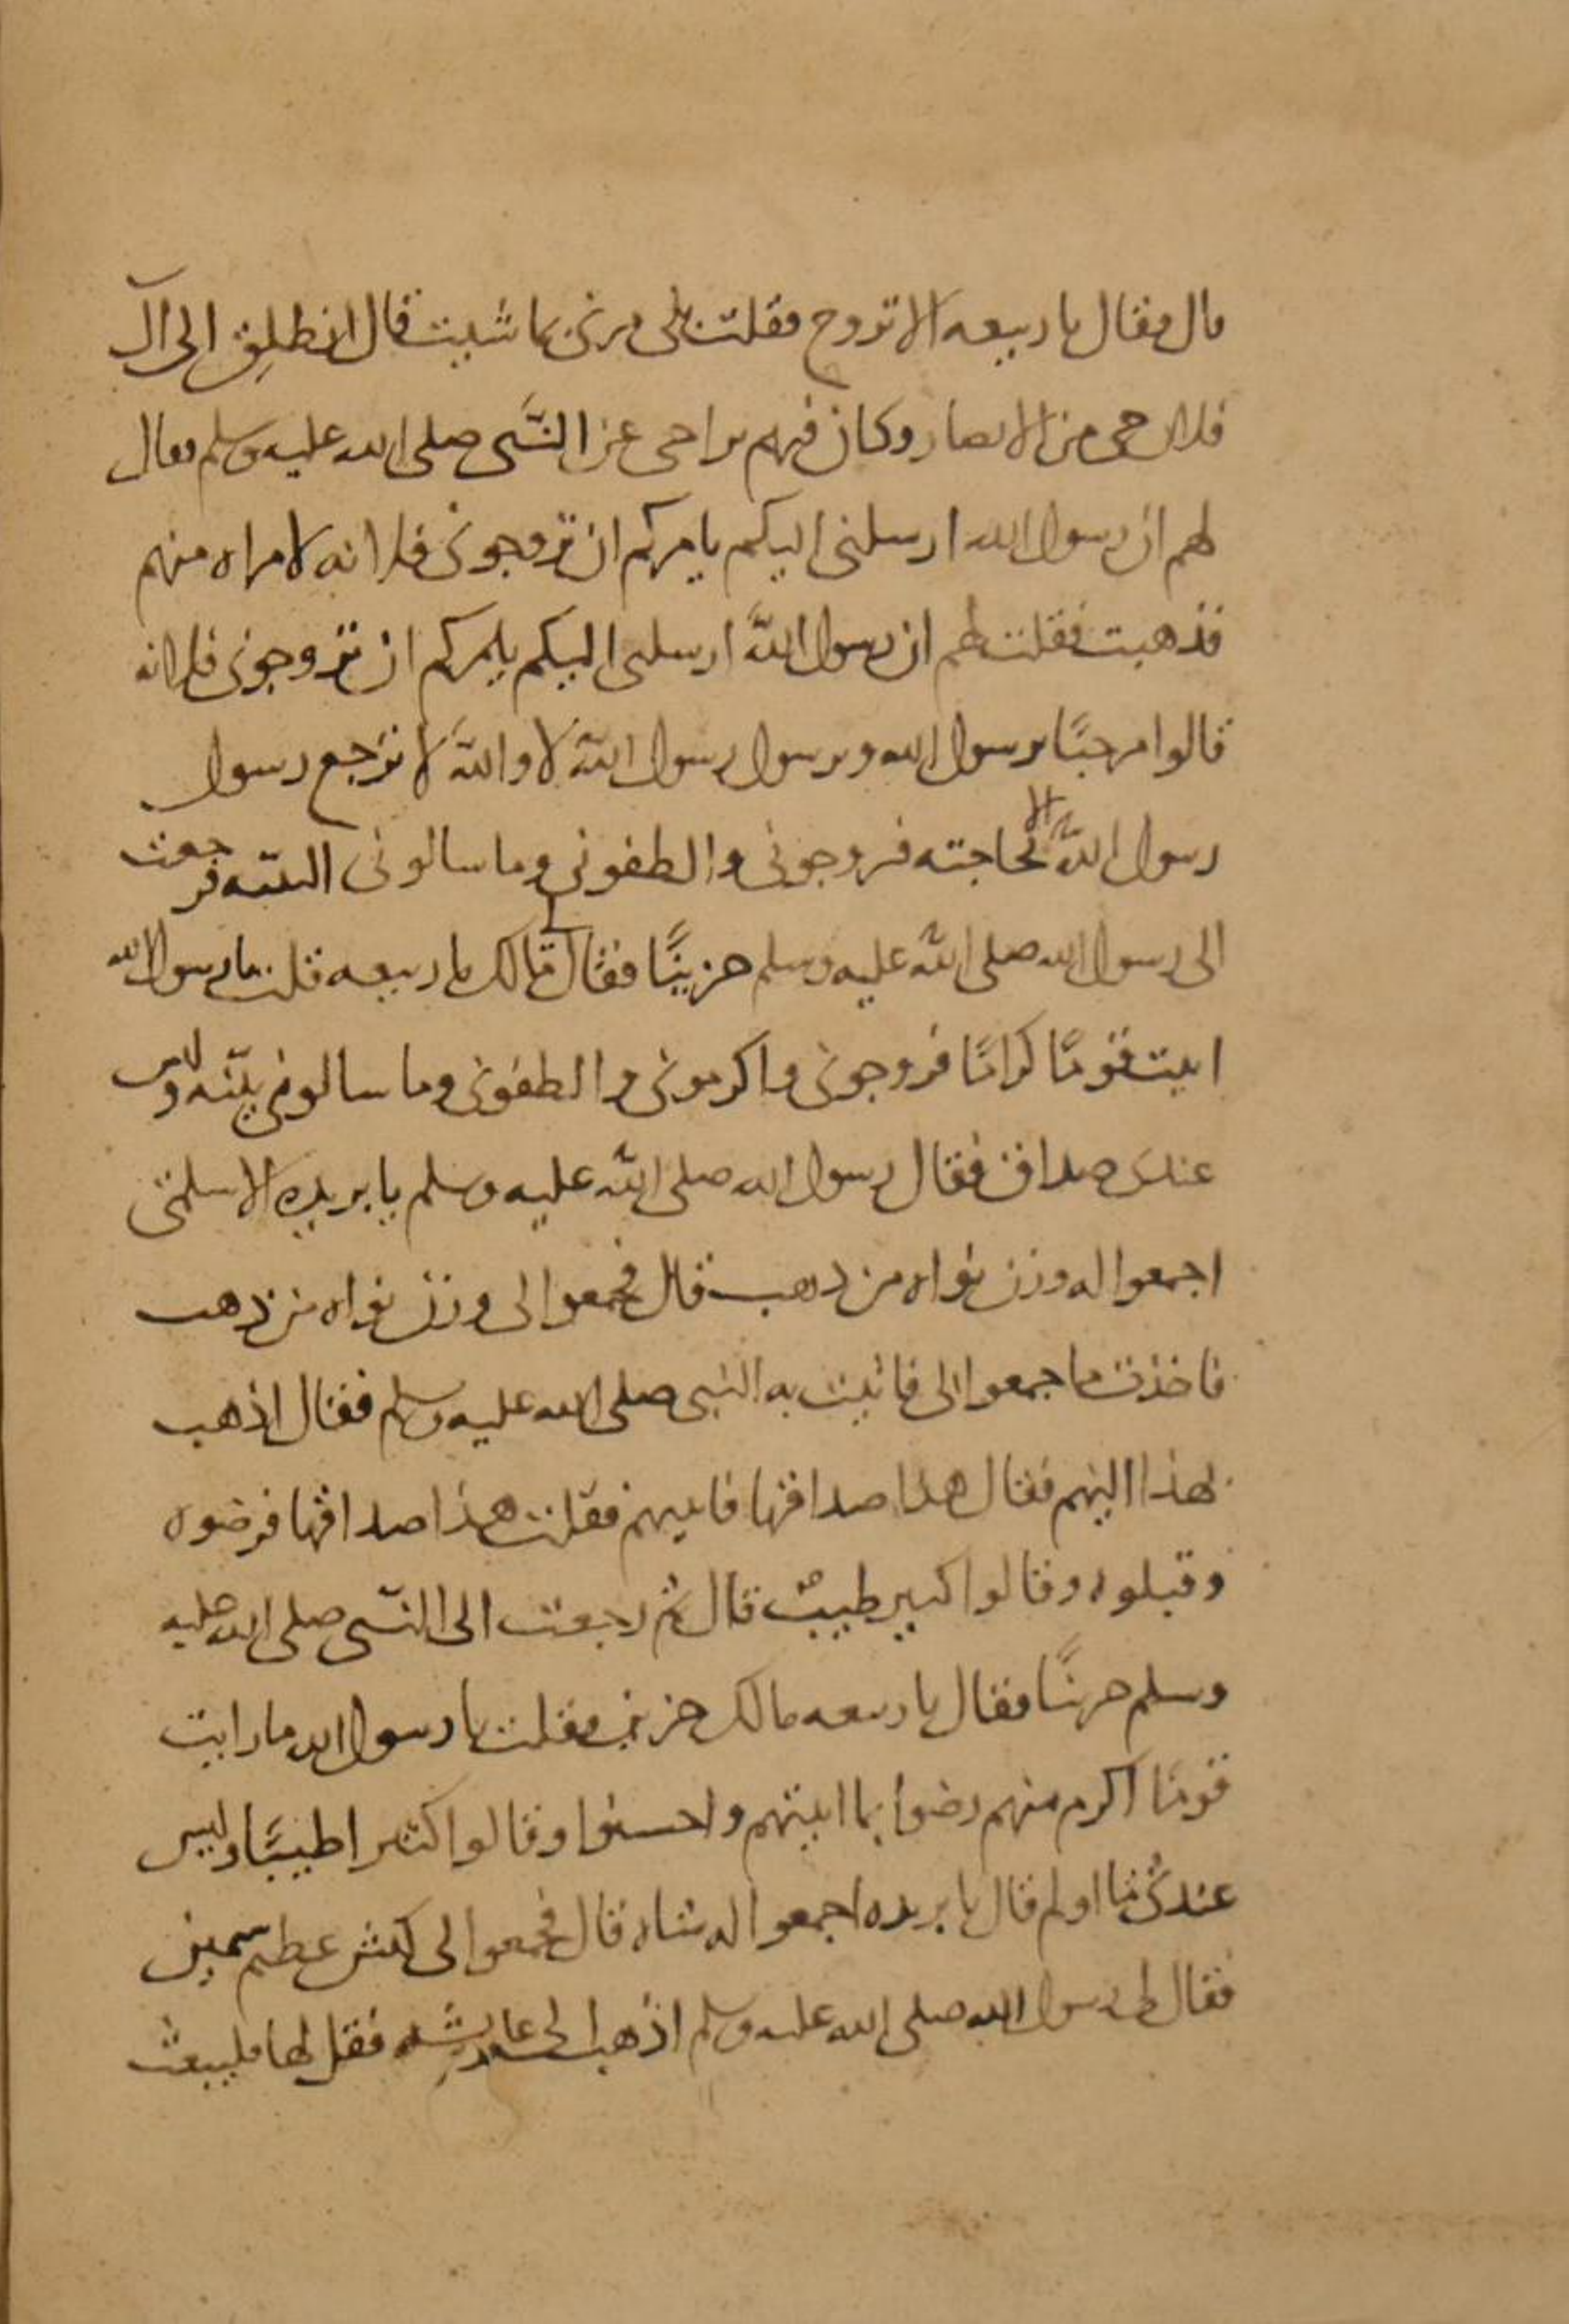 قال فقال يا ربيعه الا تزوج فقلت بلى مرنى بما شيت قال انطلق الى آل
فلان حى من الانصار وكان فيهم تراخى عن النبى صلى الله عليه وسلم فقال
لهم ان رسول الله ارسلنى اليكم يامركم ان تزوجونى فلانه لامراه منهم
فذهبت فقلت لهم ان رسول الله ارسلنى اليكم يامركم ان تزوجونى فلانه
قالوا مرحبًا برسول الله وبرسول رسول الله لا والله لا يرجع رسول
رسول الله الا لحاجته فزوجونى والطفونى وما سالونى البينه فرجعت
الى رسول الله صلى الله عليه وسلم حزينًا فقال مالك يا ربيعه قلت يا رسول الله
اتيت قومًا كرامًا فزوجونى واكرمونى والطفونى وما سالونى بينه وليس
عندى صداق فقال رسول الله صلى الله عليه وسلم يا بريده الاسلمى
اجمعوا له وزن نواه من ذهب قال فجمعوا لى وزن نواه من ذهب
فاخذت ما جمعوا لى فاتيت به النبى صلى الله عليه وسلم فقال اذهب
بهذا اليهم فقال هذا صداقها فاتيهم فقلت هذا صداقها فرضوه
وقبلوه وقالوا كثير طيبٌ قال ثم رجعت الى النبى صلى الله عليه
وسلم حزينًا فقال يا ربيعه مالك حزين فقلت يا رسول الله ما رايت
قومًا اكرم منهم رضوا بما اتيتهم واحسنوا وقالوا كثيرا طيبًا وليس
عندى ما اولم قال يا بريده اجمعوا له شاه قال فجمعوا لى كبش عظيم سمين
فقال لى رسول الله صلى الله عليه وسلم اذهب الى عايشه فقل لها فليبعث